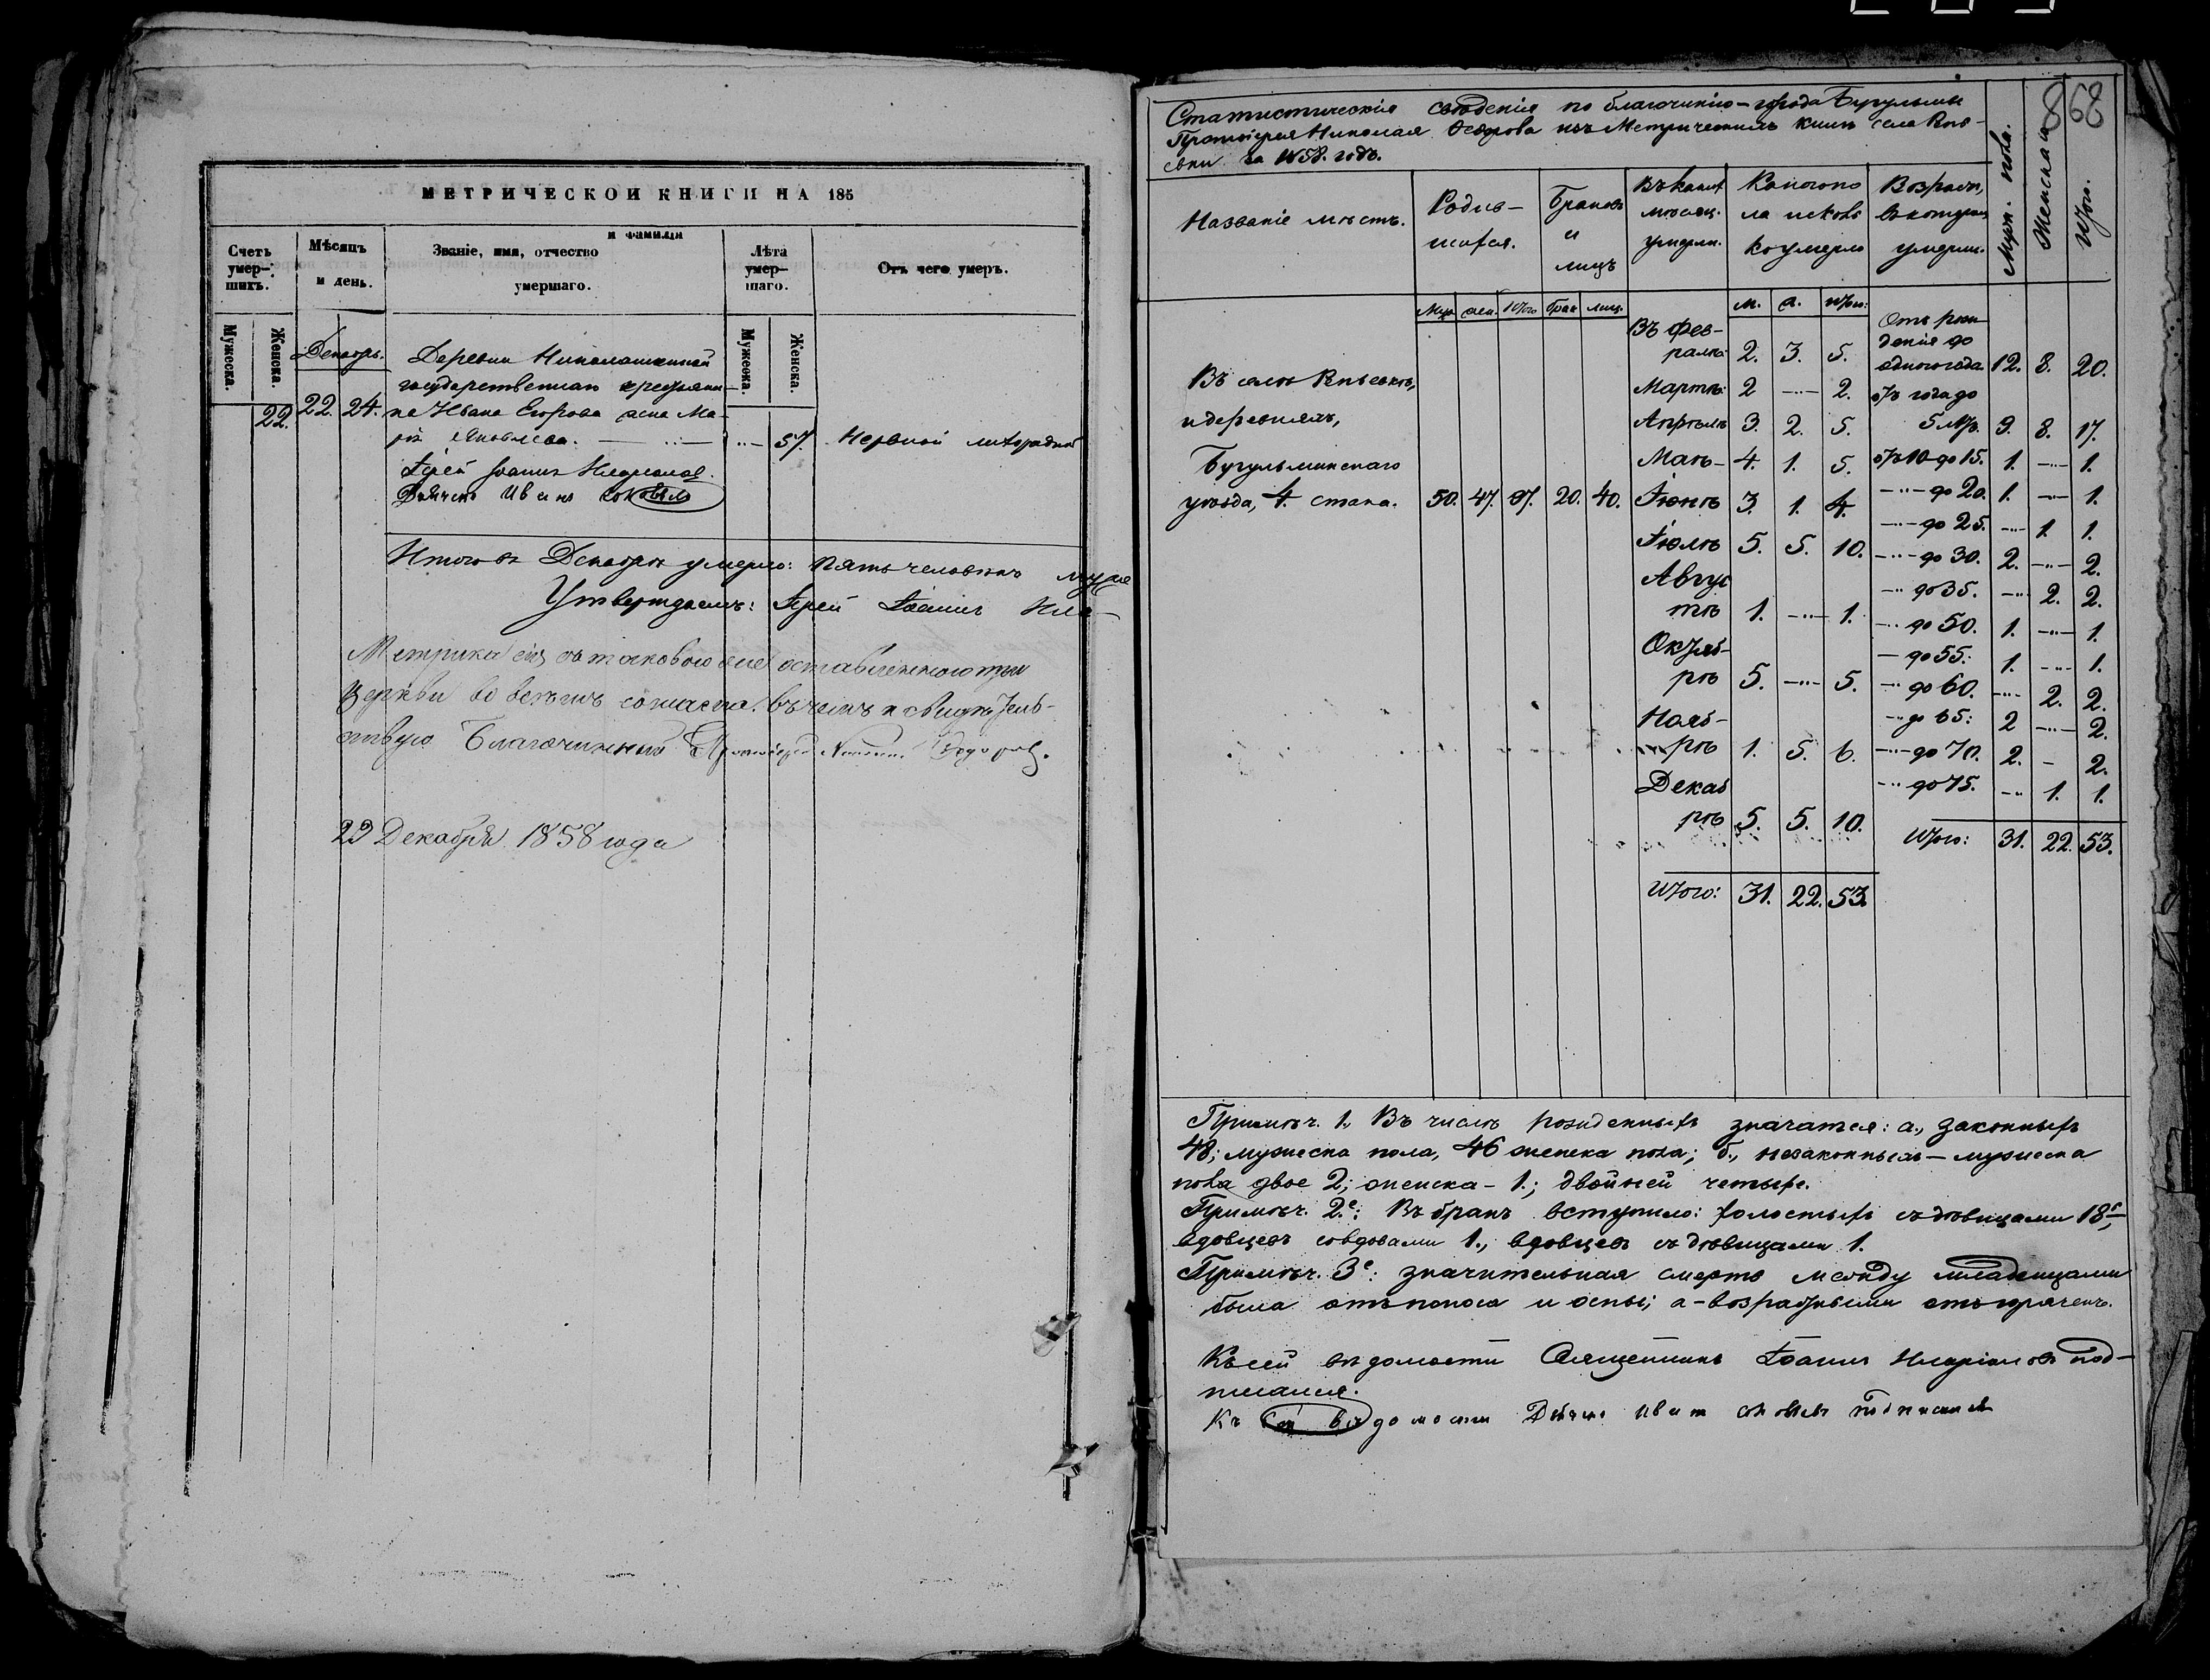 МЕТРИЧЕСКОЙ КНИГИ НА 185
Счетъ умер-шихъ.
Мѣсяцъ и день.
Званіе, имя, отчество и фамилія умершаго.
Лѣта умер-шаго.
Отъ чего умеръ.
Мужеска.
Женска.
Мужеска.
Женска.
Декабрь.
Деревни Николашкиной
государственнаго крестьяни-
22. 22. 24. на Ивана Егорова жена Ма-
рія Яковлева. 57. Нервной лихорадкой
Іерей Іоаннъ
Дьячекъ Иванъ Соковъ
Итого въ Декабрѣ умерло: пять человѣкъ муже
Утверждаемъ: Іерей Іоаннъ
Метрика сія съ таковою же оставленною при
Церкви во всемъ согласна. въ чемъ и свидѣтель-
ствую Благочинный Протоіерей Николай Федоровъ.
29 Декабря 1858 года
868
Статистическія свѣденія по благочинію города Бугульмы
Протоіерея Николая Федорова изъ Метрическихъ книгъ села
за 1858. годъ.
Названіе мѣстъ.
Родив-
шихся.
Браковъ
и
лицъ
Въ какихъ
мѣсяц.
умерли.
Какого по
ла и сколь
ко умерло
Возрастъ,
въ которомъ
умерли.
Муж. пола.
Женска
Итого.
Муж. жен. Итого брак. лиц. м. ж. Итого:
Въ фев-
ралѣ 2. 3. 5.
Отъ рож-
денія до
одного года 12. 8. 20.
Въ селѣ
и деревняхъ,
Бугульминскаго
уѣзда, 4. стана. 50. 47. 97. 20. 40.
Мартѣ 2 2.
Апрѣлѣ 3. 2. 5.
Маѣ 4. 1. 5.
Іюнѣ 3. 1. 4.
Іюлѣ 5. 5. 10.
Авгус
тѣ 1. 1.
Октяб-
рѣ 5. 5.
Нояб-
рѣ 1. 5. 6.
Декаб
рѣ 5. 5. 10.
Итого: 31. 22. 53.
отъ года до
5 лѣтъ. 9. 8. 17.
отъ 10 до 15. 1. 1.
до 20. 1. 1.
до 25. 1. 1.
до 30. 2. 2.
до 35. 2. 2.
до 50. 1. 1.
до 55. 1. 1.
до 60. 2. 2.
до 65: 2 2.
до 70. 2. 2.
до 75. 1. 1.
Итого: 31. 22. 53.
Примѣч. 1. Въ числѣ рожденныхъ значатся: а., законныхъ
48; мужеска пола, 46 женска пола; б., незаконныхъ – мужеска
пола двое 2; женска – 1.; двойней четыре.
Примѣч. 2.е: Въ бракъ вступило: холостыхъ съ дѣвицами 18,
вдовцевъ со вдовами 1., вдовцевъ съ дѣвицами 1.
Примѣч. 3е: значительная смерть между младенцами
была отъ поноса и оспы; а возрастными отъ горячекъ.
Къ сей вѣдомости Священникъ Іоаннъ под-
писался.
Къ сей вѣдомости Дьячекъ Иванъ Соковъ подписался